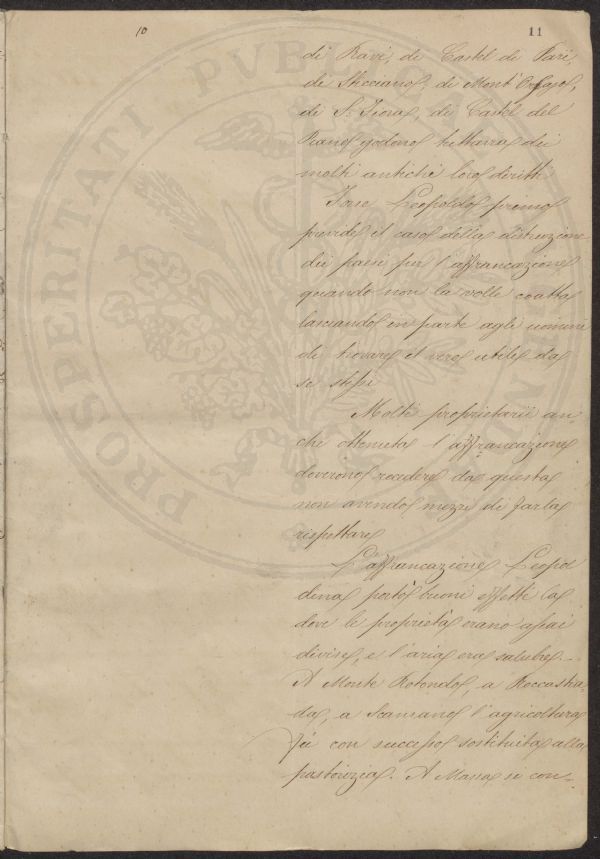 10
11
di Ravi, di Castel di Pari,
di Sticciano, di Mont'Orsajo,
di S. Fiora, di Castel del
Piano godono tuttavia di
molti antichi loro diritti
Forse Leopoldo primo
previde il caso della distruzione
dei paesi per l'affrancazione
quando non la volle coatta
lasciando in parte agli uomini
di trovare il vero utile da
se stessi
Molti proprietarii an-
che ottenuta l'affrancazione
doverono recedere da questa
non avendo mezzi di farla
rispettare
L'affrancazione Leopol
dina portò buoni effetti la
dove le proprietà erano assai
divise, e l'aria era salubre.
A Monte Rotondo, a Roccastra-
da, a Scansano l'agricoltura
fù con successo sostituita alla
pastorizia. A Massa si con-
PROSPERITATI PVBLICAE